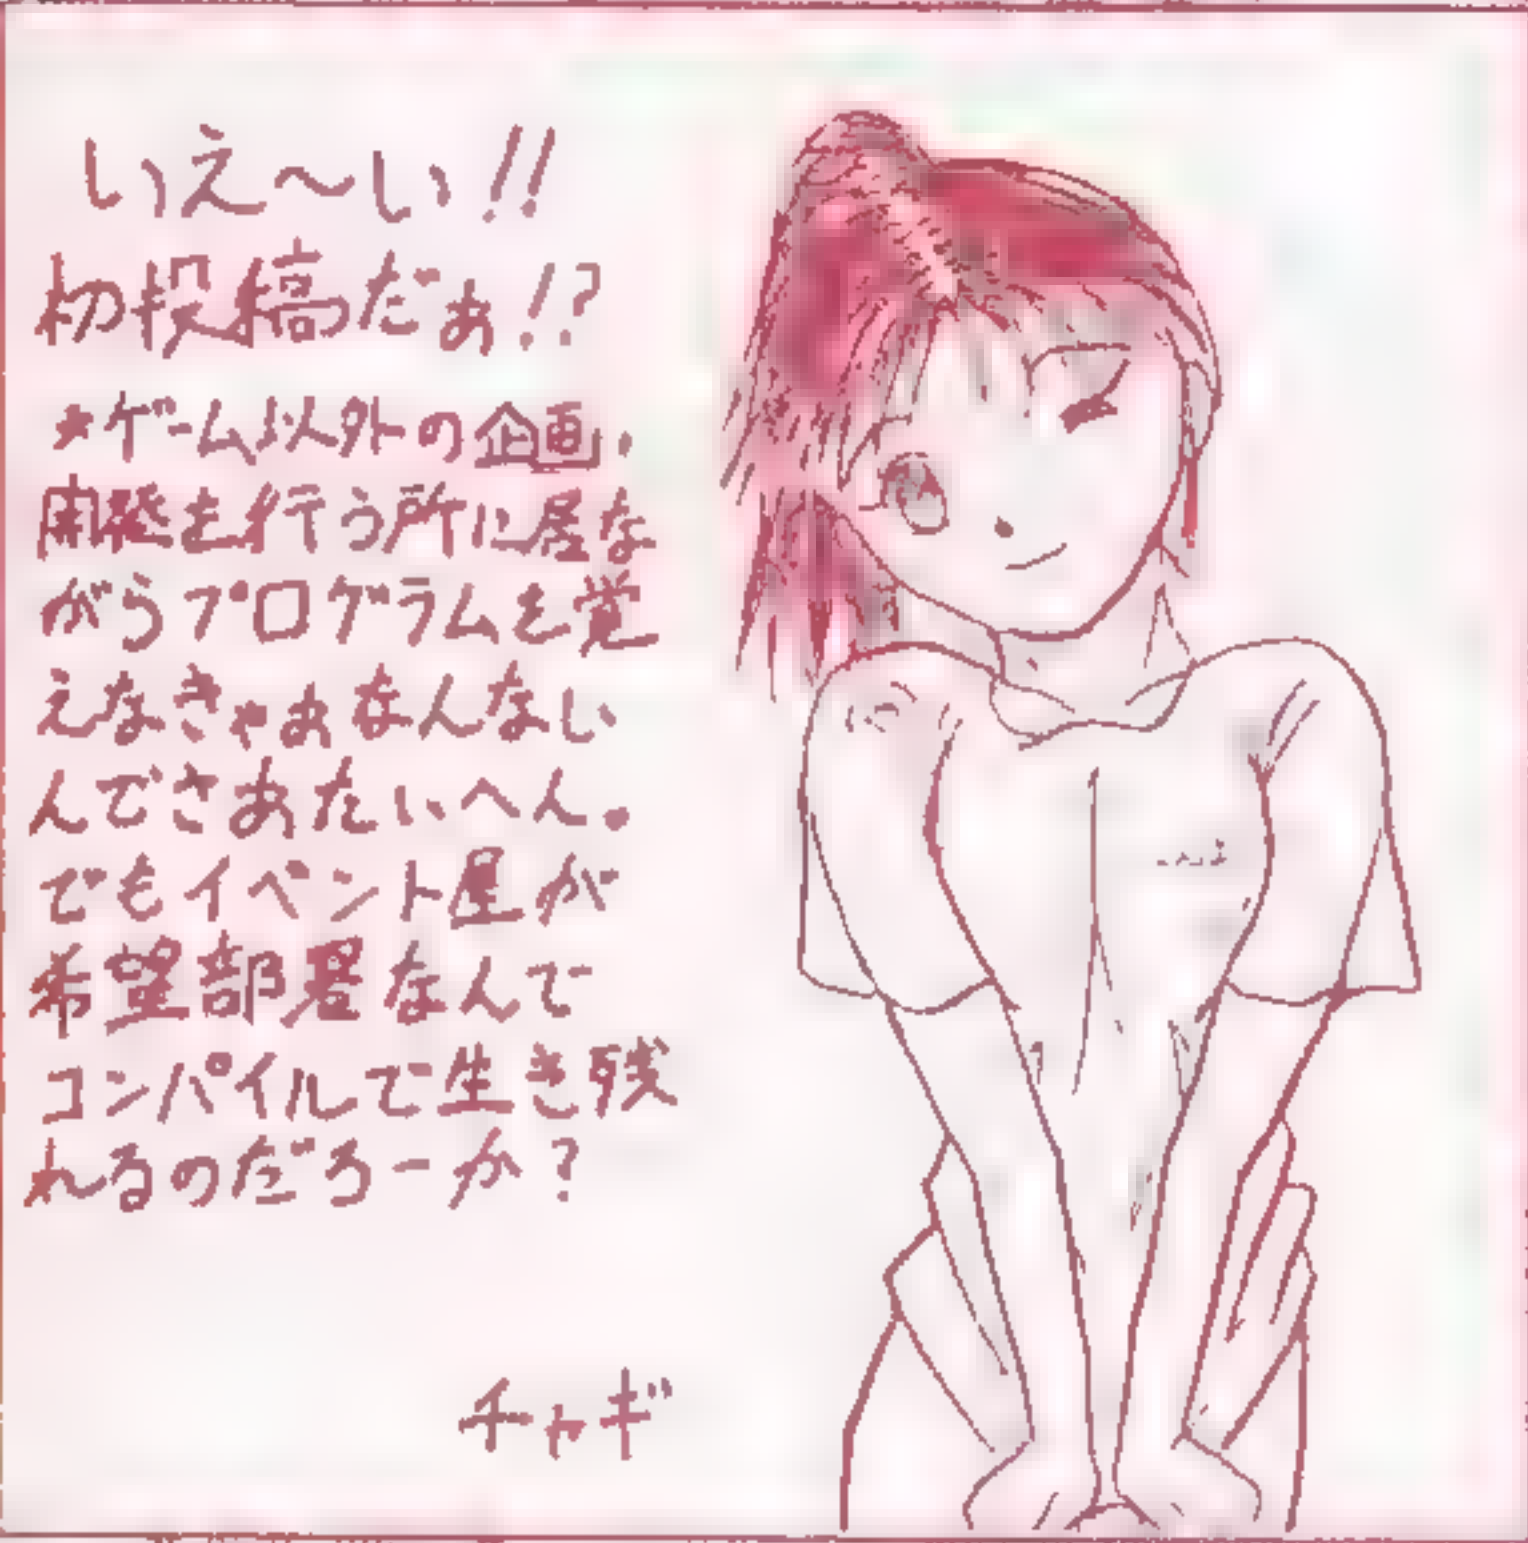 いえ〜い!!
初投稿だぁ!?
★ゲーム以外の企画、
開発を行う所に居な
がらプログラムを覚
えなきゃぁなんない
んでさあたいへん。
でもイベント屋が
希望部署なんで
コンパイルで生き残
れるのだろーか?
チャギ